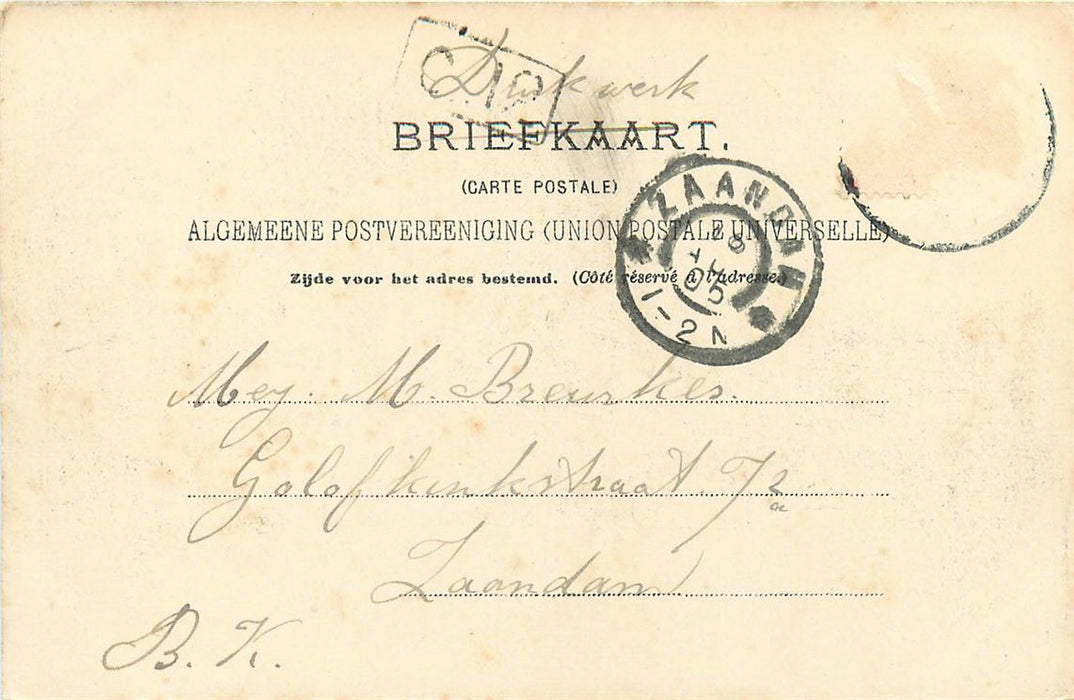 Drukwerk
BRIEFKAART.
(CARTE POSTALE)
ALGEMEENE POSTVEREENIGING (UNION POSTALE UNIVERSELLE)
Zijde voor het adres bestemd. (Côté réservé à l'adresse.)
ZAANDAM
1-2 N
Mej. M. Breurkes.
Golofkinkstraat 72a
Zaandam
B. K.